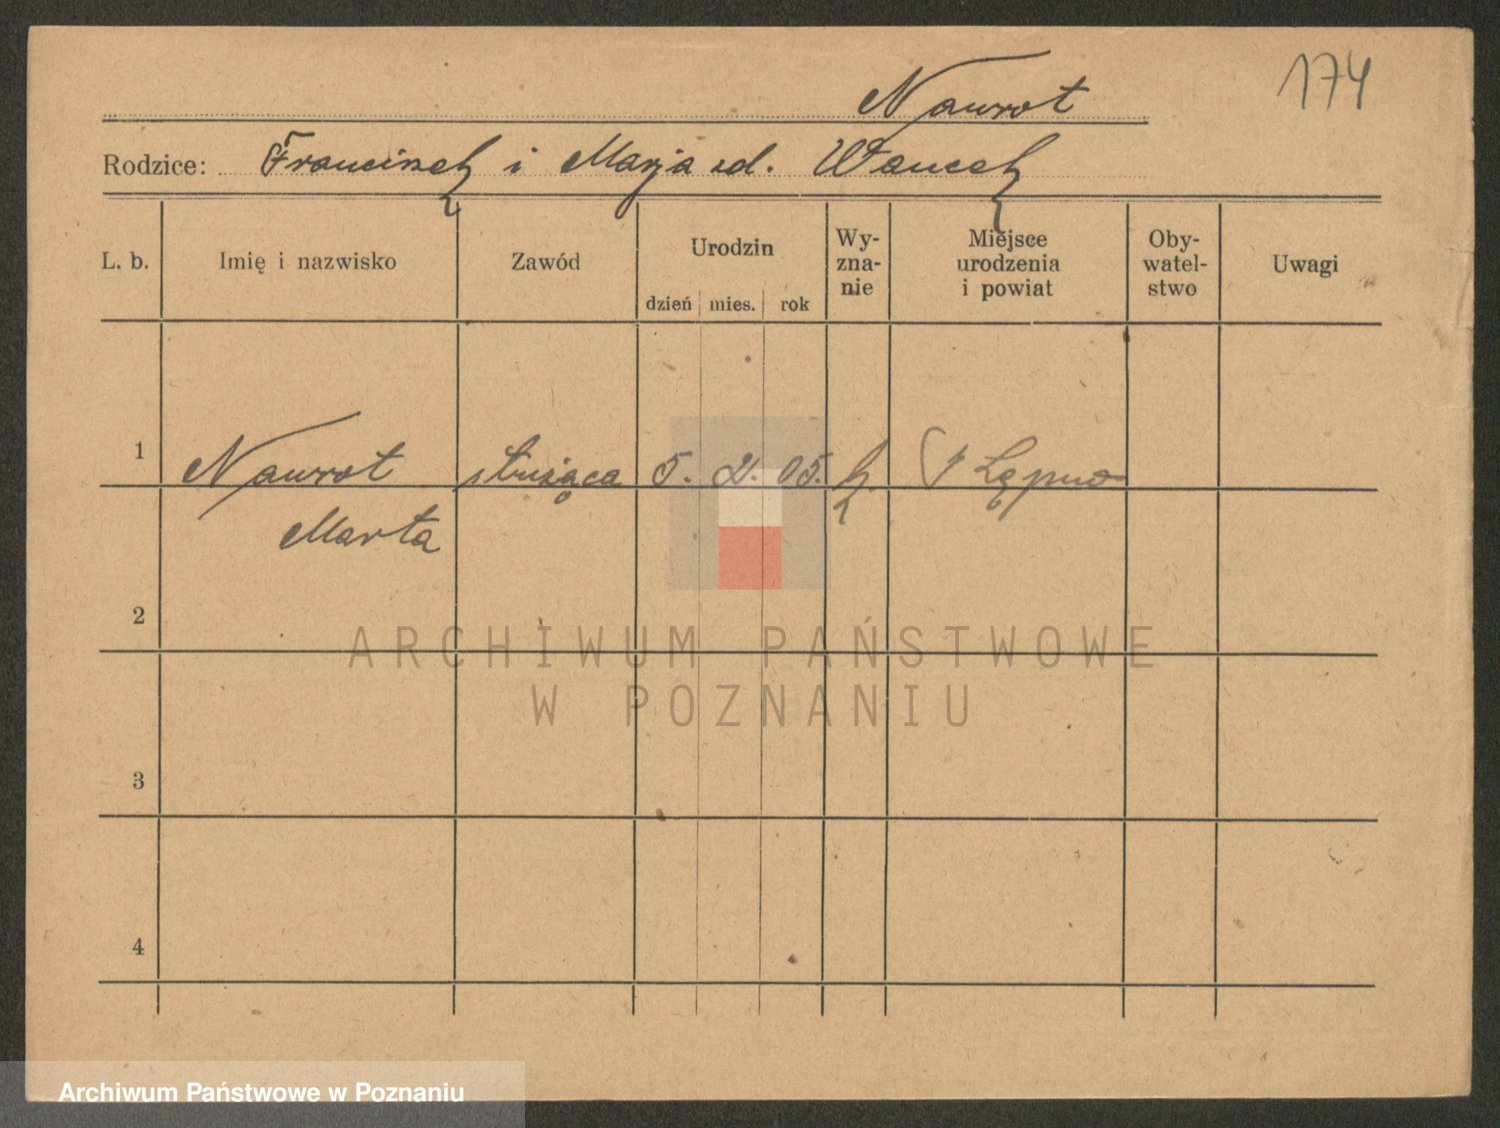 174
Nawrot
Rodzice: Franciszek i Marja zd. Wancek
L. b. Imię i nazwisko Zawód Urodzin dzień mies. rok Wy-
zna-
nie Miejsce
urodzenia
i powiat Oby-
watel-
stwo Uwagi
1 Nawrot służąca 5. 2. 05. k.
Marta
2
ARCHIWUM PAŃSTWOWE
W POZNANIU
3
4
Archiwum Państwowe w Poznaniu